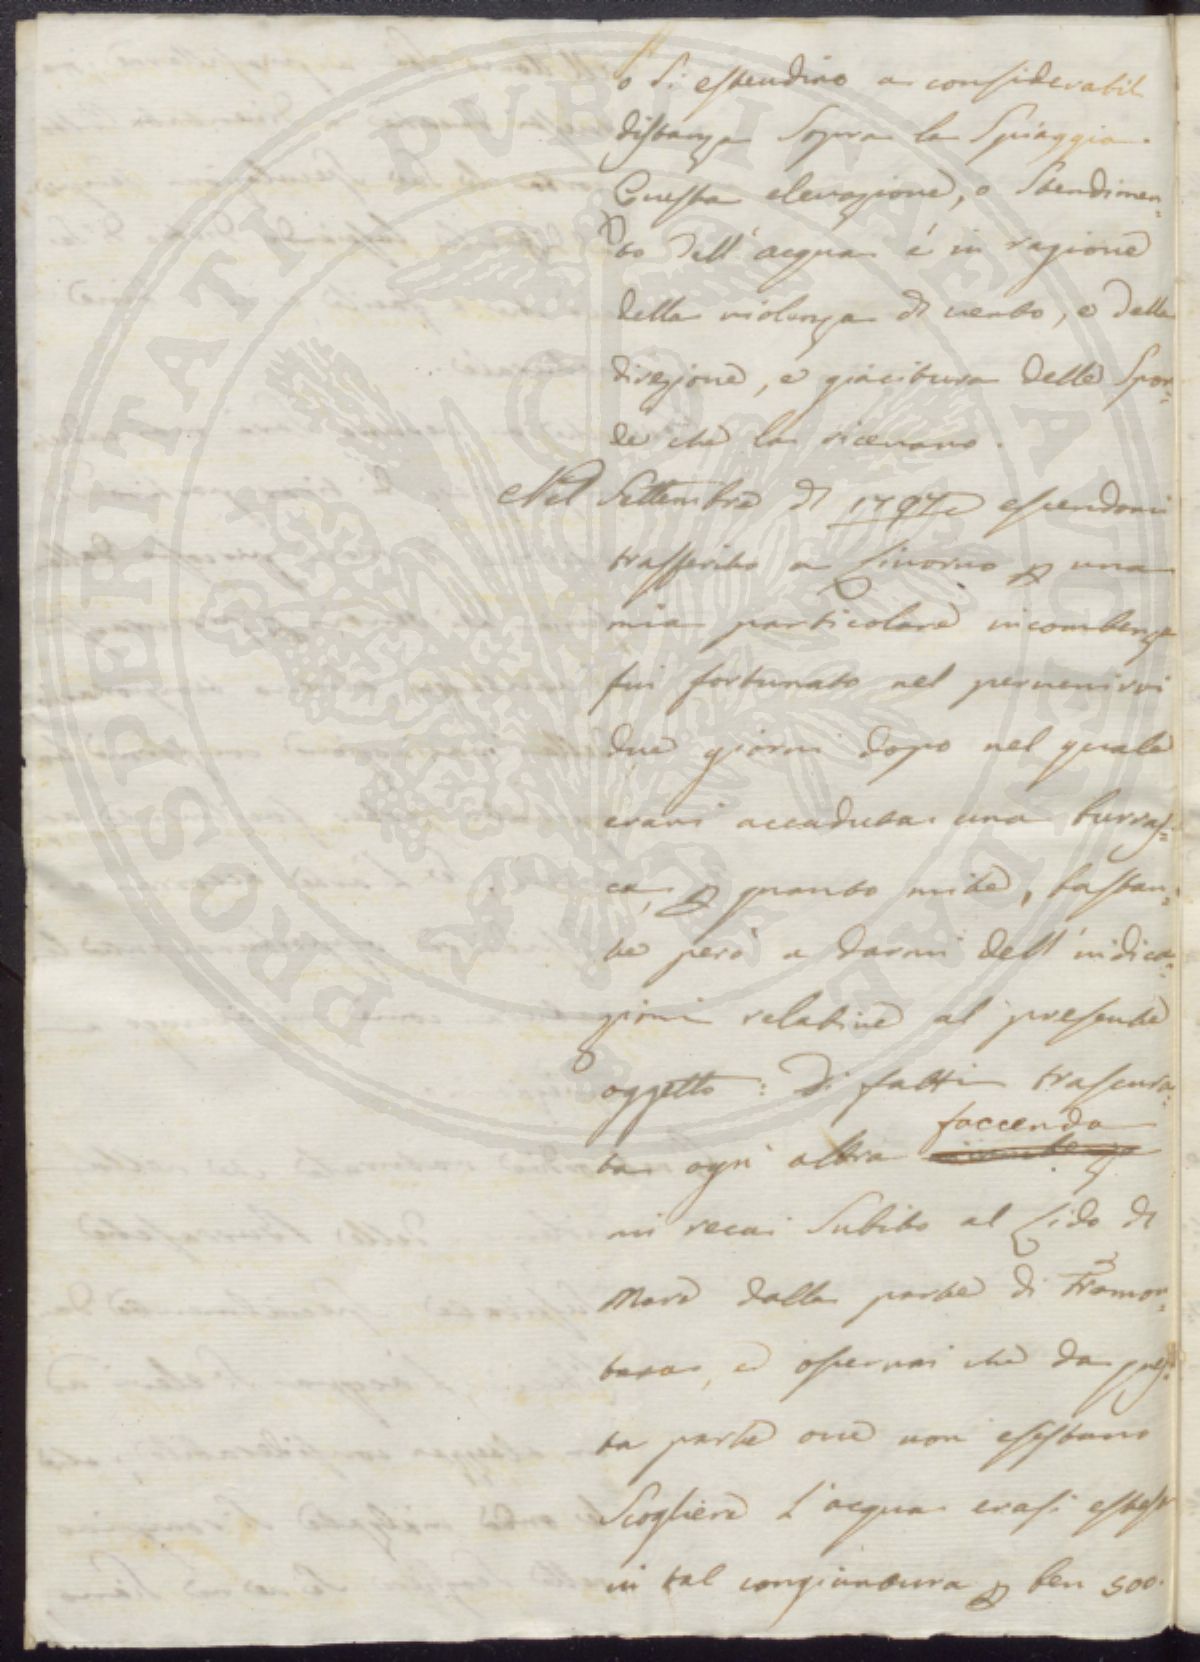 o si estendino a considerabil
distanza sopra la Spiaggia.
Questa elevazione, o stendimen=
to dell'acqua é in ragione
della violenza di vento, e della
direzione, e giacitura delle Spon=
de che la ricevano.
Nel Settembre di 1797 essendomi
trasferito a Livorno p una
mia particolare incombenza
fui fortunato nel pervenirvi
due giorni dopo nel quale
eravi accaduta una burras=
ca, p quanto mite, bastan=
te però a darmi dell'indica=
zioni relative al presente
oggetto: Di fatti trascura=
ta ogni altra faccenda
mi recai subito al Lido di
Mare dalla parte di Tramon=
tana, ed osservai che da ques=
ta parte ove non esistano
Scogliere l'acqua erasi estesa
in tal congiuntura p ben 500.
PROSPERITATI PUBLICAE AUGENDAE